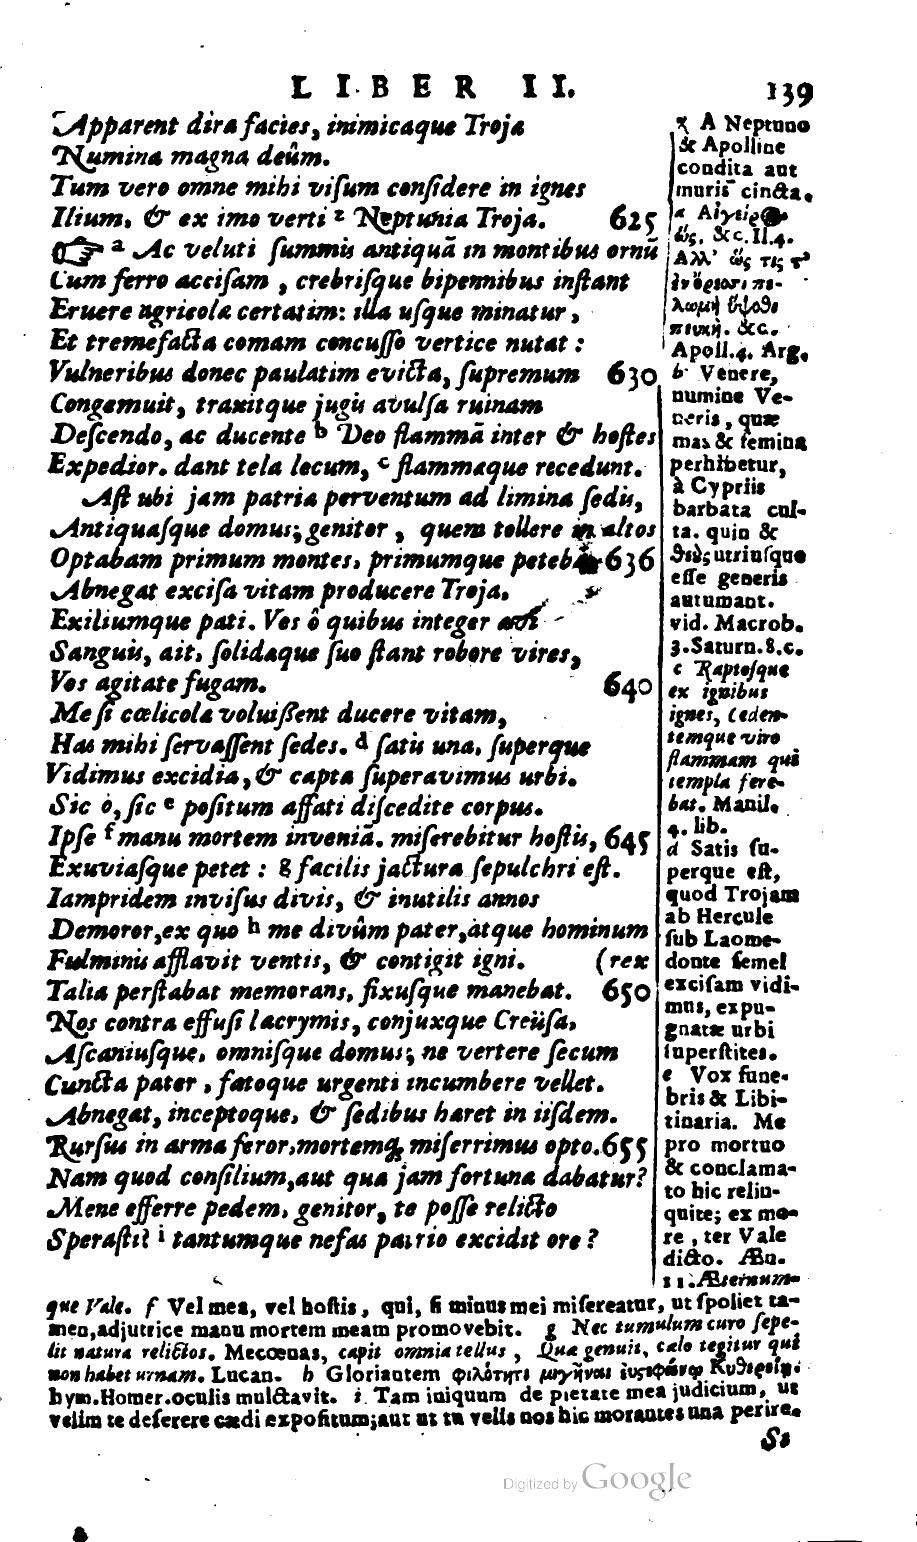 LIBER II. 139
Apparent dira facies, inimicaque Troja
Numina magna deûm.
Tum vero omne mihi visum considere in ignes
Ilium, & ex imo verti z Neptunia Troja. 625
☞ a Ac veluti summis antiquā in montibus ornū
Cum ferro accisam, crebrisque bipennibus instant
Eruere agricolæ certatim: illa usque minatur,
Et tremefacta comam concusso vertice nutat:
Vulneribus donec paulatim evicta, supremum 630
Congemuit, traxitque jugis avulsa ruinam
Descendo, ac ducente b Deo flammā inter & hostes
Expedior. dant tela locum, c flammaque recedunt.
Ast ubi jam patria perventum ad limina sedis,
Antiquasque domus; genitor, quem tollere in altos
Optabam primum montes, primumque petebam 636
Abnegat excisa vitam producere Troja.
Exiliumque pati. Vos ô quibus integer
Sanguis, ait, solidaque suo stant robore vires,
Vos agitate fugam. 640
Me si cœlicola voluissent ducere vitam,
Has mihi servassent sedes. d satis una, superque
Vidimus excidia, & capta superavimus urbi.
Sic ò, sic e positum affati discedite corpus.
Ipse f manu mortem inveniā. miserebitur hostis, 645
Exuviasque petet: g facilis jactura sepulchri est.
Iampridem invisus divis, & inutilis annos
Demoror, ex quo h me divûm pater, atque hominum
Fulminis afflavit ventis, & contigit igni. (rex
Talia perstabat memorans, fixusque manebat. 650
Nos contra effusi lacrymis, conjuxque Creüsa,
Ascaniusque, omnisque domus; ne vertere secum
Cuncta pater, fatoque urgenti incumbere vellet.
Abnegat, inceptoque, & sedibus haret in iisdem.
Rursus in arma feror, mortemq; miserrimus opto. 655
Nam quod consilium, aut qua jam fortuna dabatur?
Mene efferre pedem, genitor, te posse relicto
Sperasti? i tantumque nefas patrio excidit ore?
z A Neptuno
& Apolline
condita aut
muris cincta.
a
ὥς, &c. Il. 4.
Ἀλλ' ὥς τις τ'

ὕψοθι
πευκη. &c.
Apoll. 4. Arg.
b Venere,
numine Ve-
neris, quæ
mas & femina
perhibetur,
à Cypriis
barbata cul-
ta. quin &
θεὸς utriusque
esse generis
autumant.
vid. Macrob.
3. Saturn. 8. c.
c Raptosque
ex ignibus
ignes, Ceden-
temque viro
flammam qui
templa fere-
bat. Manil.
4. lib.
d Satis su-
perque est,
quod Trojam
ab Hercule
sub Laome-
donte semel
excisam vidi-
mus, expu-
gnatæ urbi
superstites.
e Vox fune-
bris & Libi-
tinaria. Me
pro mortuo
& conclama-
to hic relin-
quite; ex mo-
re, ter Vale
dicto. Æn.
11. Æternum-
que Vale. f Vel mea, vel hostis, qui, si minus mei misereatur, ut spoliet ta-
men, adjutrice manu mortem meam promovebit. g Nec tumulum curo sepe-
lit natura relictos. Mecœnas, capit omnia tellus, Quæ genuit, cælo tegitur qui
non habet urnam. Lucan. h Gloriantem φιλότητι μιγῆναι
hym. Homer. oculis mulctavit. i Tam iniquum de pietate mea judicium, ut
velim te deserere cædi expositum; aut ut tu velis nos hic morantes una perire.
Si
Digitized by Google